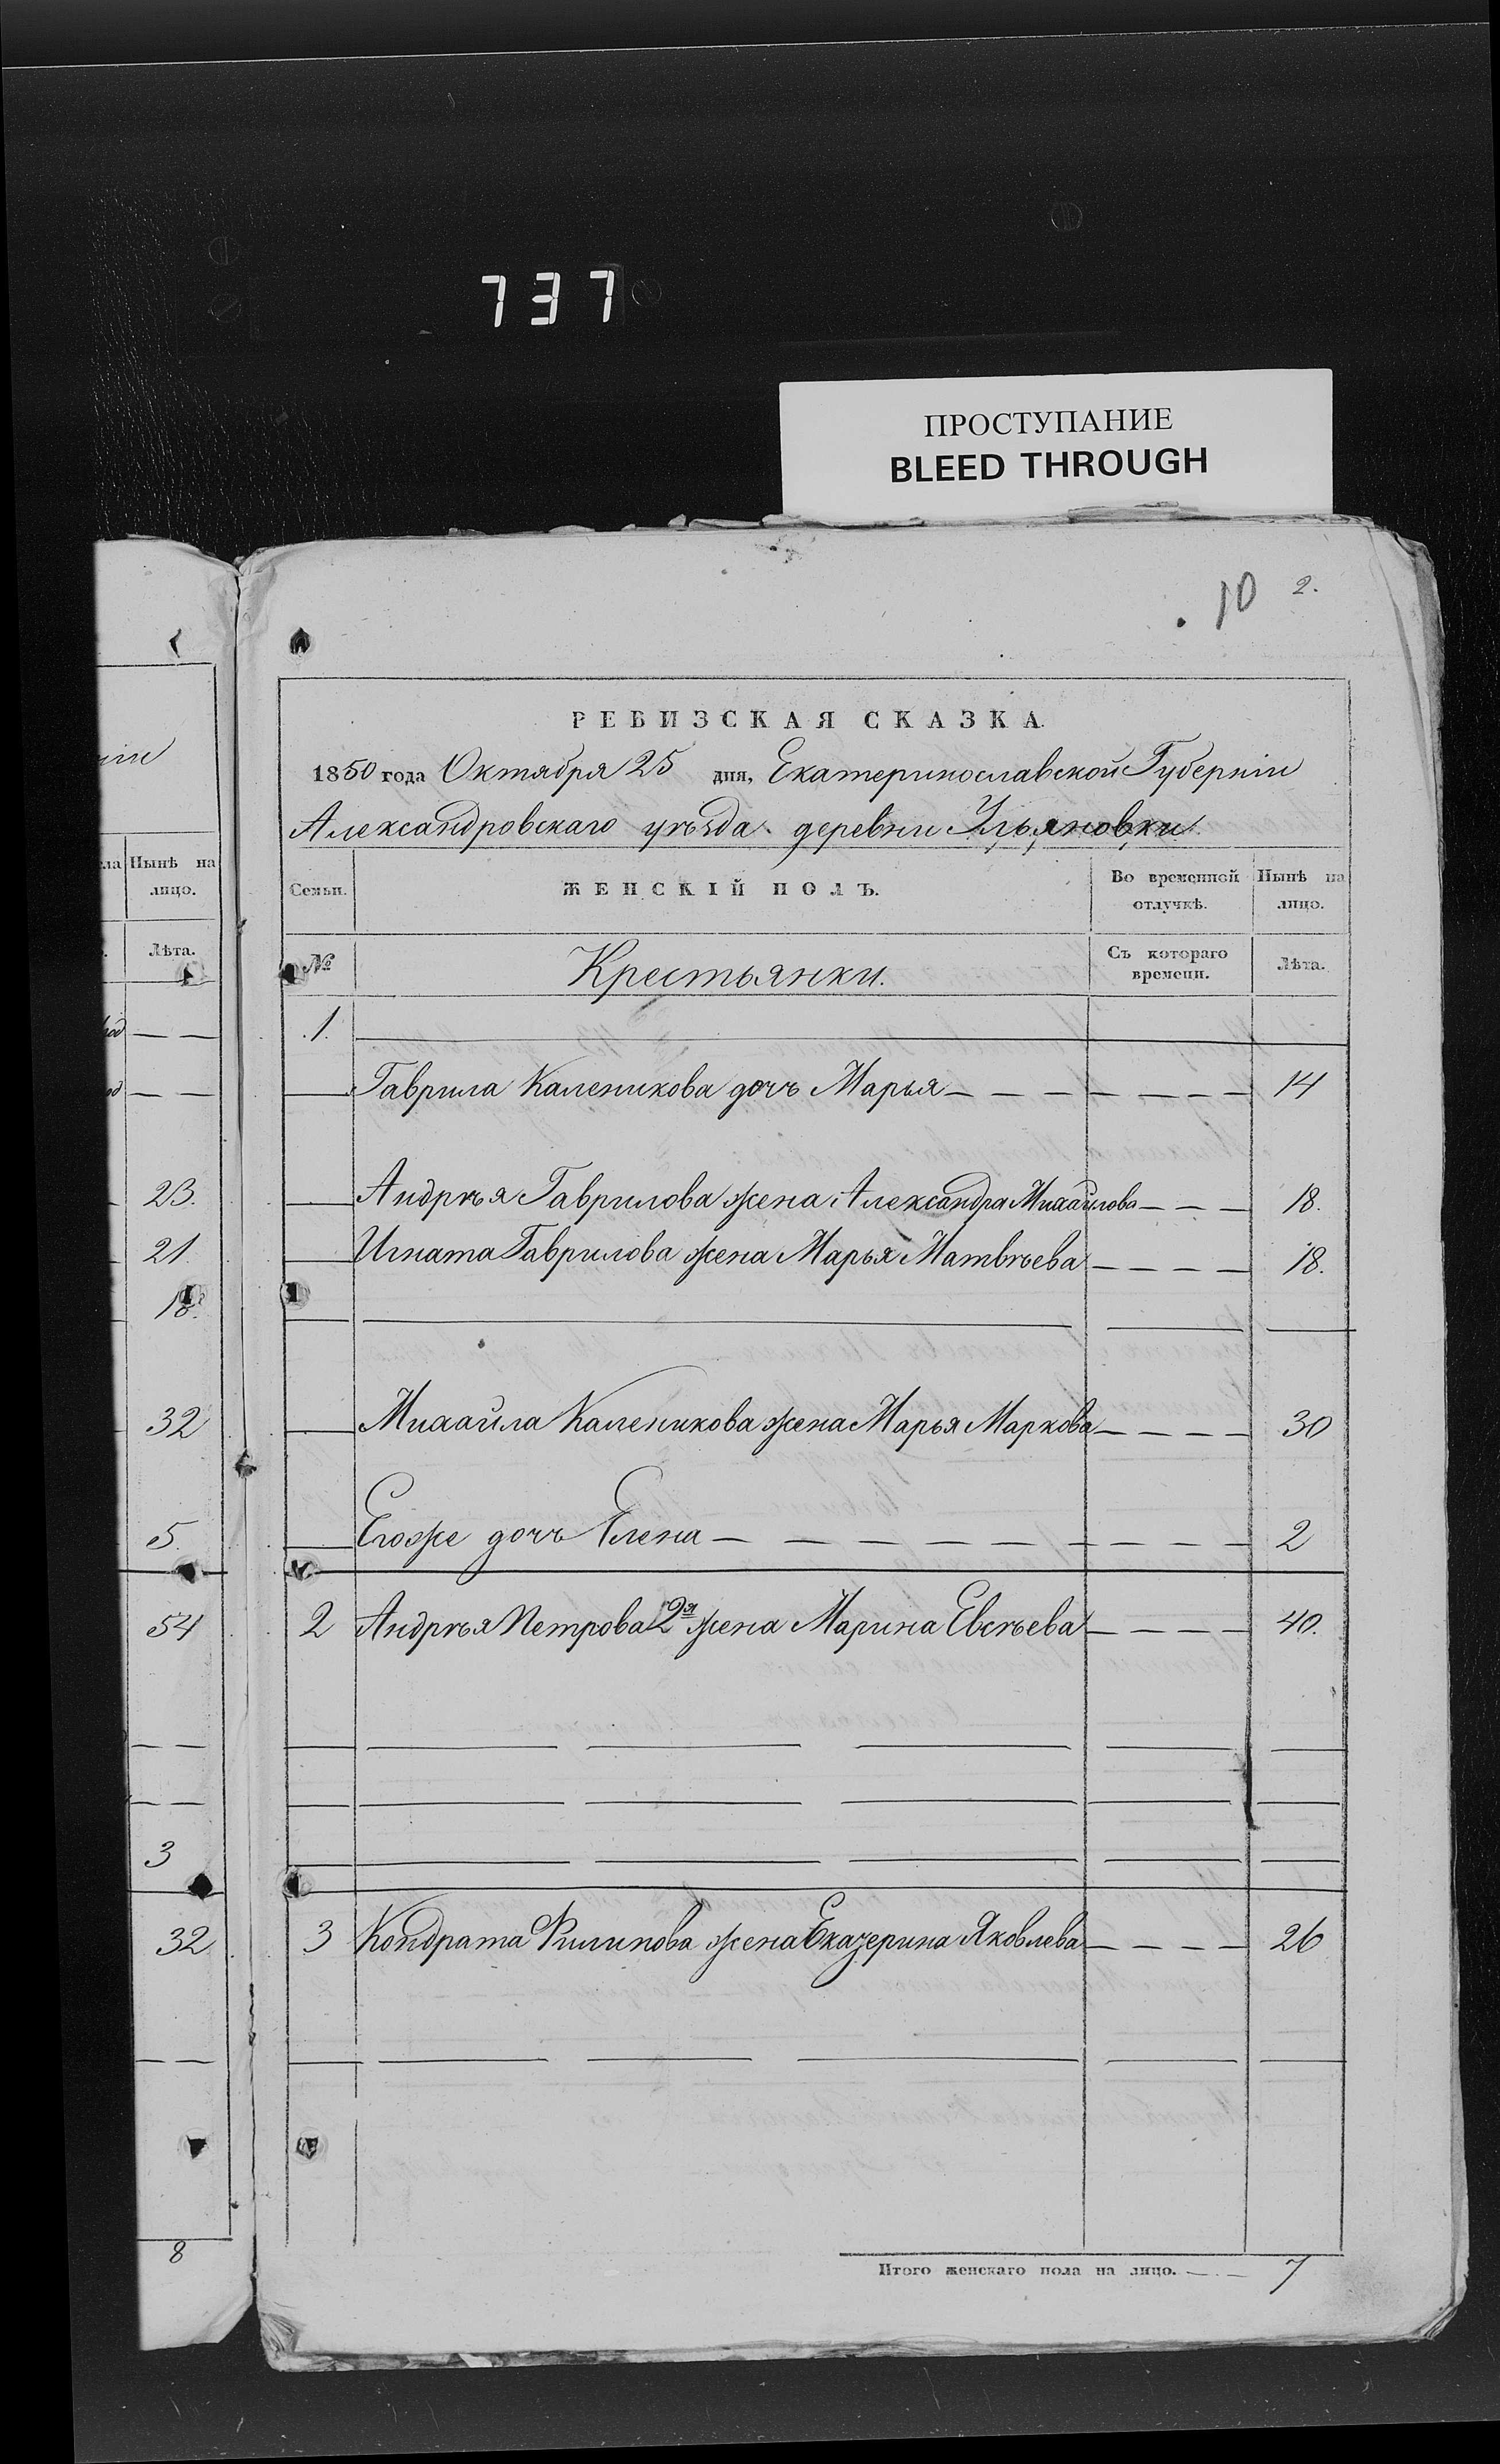 737
ПРОСТУПАНИЕ
BLEED THROUGH
10 2.
РЕВИЗСКАЯ СКАЗКА.
1850 года Октября 25 дня, Екатеринославской Губерніи
Александровскаго уѣзда деревни Ульяновки.
Нынѣ на лицо.
Семьи. ЖЕНСКІЙ ПОЛЪ. Во временной отлучкѣ. Нынѣ на лицо.
Лѣта.
№ Крестьянки. Съ котораго времени. Лѣта.
1.
Гаврила Каленикова дочь Марья 14
23. Андрѣя Гаврилова жена Александра Михайлова 18.
21. Игната Гаврилова жена Марья Матвѣева 18.
18.
32 Михайла Каленикова жена Марья Маркова 30
5. Егоже дочь Елена 2
54 2 Андрѣя Петрова 2я жена Марина Евсѣева 40.
3
32 3 Кондрата Филипова жена Екатерина Яковлева 26
8
Итого женскаго пола на лицо. 7